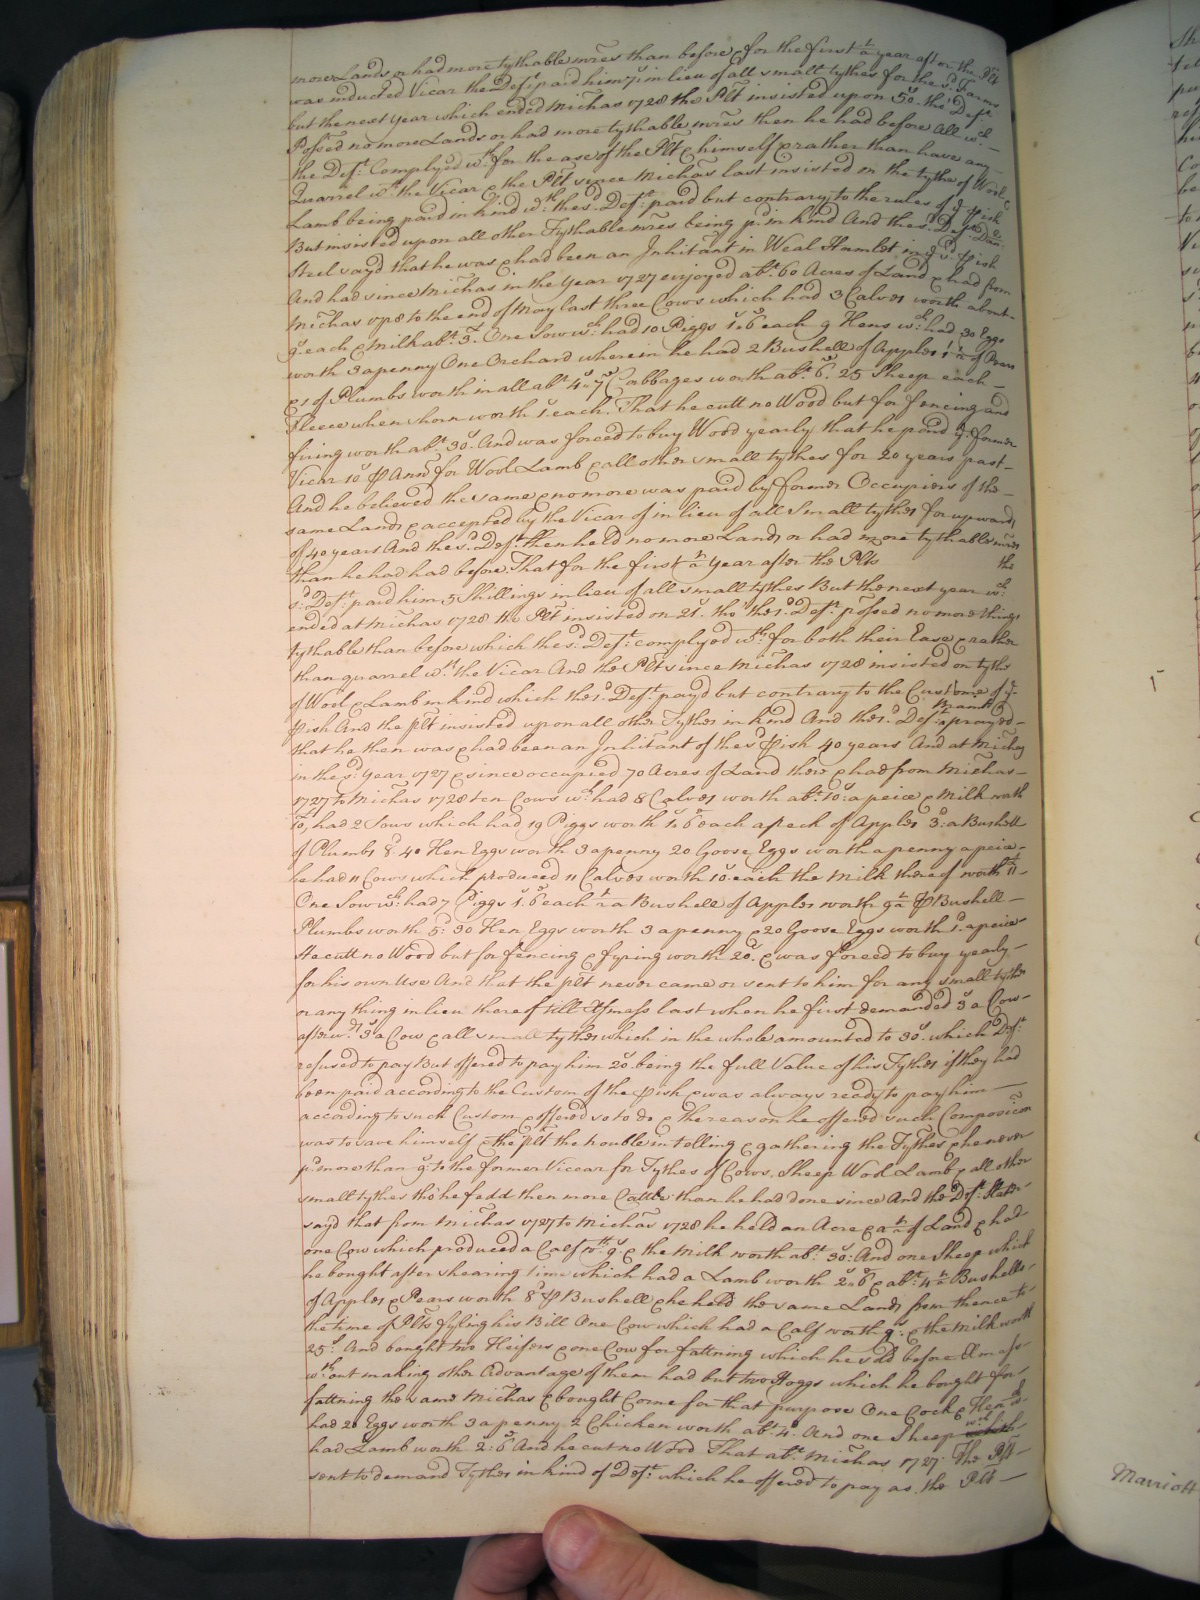 more Lands or had more tythable mres than before & for the first ½ a year after the Plt
was inducted Vicar the Deft paid him 7s in lieu of all small tythes for the sd Farms
but the next year which ended Michas 1728 the Plt insisted upon 50s the Deft
Possed no more Lands or had more tythable mres then he had before All wch
the Deft Complyed wth for the ase of the Plt & himself & rather than have any
Quarrel wth the Vicar & the Plt since Michas last insisted on the tythe of Wool &
Lamb being paid in kind wch the sd Deft paid but contrary to the rules of ye Pish
But insisted upon all other Tythable mres being pd in kind And the sd Deft Dan:
Steel sayd that he was & had been an Inhitant in Weal Hamlet in ye sd Pish
And had since Michas in the Year 1727 enjoyed abt 60 Acres of Land & had from
Michas 1728 to the end of May last three Cows which had 3 Calves worth about
9s each & Milk abt 3£ One Sow wch had 10 Piggs 1s 6d each 9 Hens wch had 30 Eggs
worth 3 a penny One Orchard wherein he had 2 Bushell of Apples 1½ of Pears
& 1 of Plumbs worth in all abt 4s 7d Cabbages worth abt 6d 25 Sheep each
Fleece when shorn worth 1s each. That he cutt no Wood but for fencing and
firing worth abt 30s And was forced to buy Wood yearly that he paid ye former
Vicar 10s P Ann for Wool Lamb & all other small tythes for 20 years past
And he believed the same & no more was paid by former Occupiers of the
same Lands & accepted by the Vicar of in lieu of all small tythes for upwards
of 40 years And the sd Deft then held no more Lands or had more tythable mres
than he had had before. That for the first ½ a year after the Plts the
sd Deft paid him 5 Shillings in lieu of all small tythes But the next year wch
ended at Michas 1728 the Plt insisted on 21s tho' the sd Deft possed no more things
tythable than before which the sd Deft complyed wth for both their Ease & rather
than quarrel wth the Vicar And the Plt since Michas 1728 insisted on tythe
of Wool & Lamb in kind which the sd Deft payd but contrary to the Custome of ye
Pish And the plt insisted upon all other Tythes in kind And the sd Deft sayed
that he then was & had been an Inhitant of the sd Pish 40 years And at Michas
in the sd year 1727 & since occupied 70 Acres of Land there & had from Michas
1727 to Michas 1728 ten Cows wch had 8 Calves worth abt 10s a peice & Milk worth
10£ had 2 Sows which had 19 Piggs worth 1s 6d each a peck of Apples 3d a Bushell
of Plumbs 8d 40 Hen Eggs worth 3 a penny 20 Goose Eggs worth a penny a peice
he had 11 Cows which produced 11 Calves worth 10s each the Milk thereof worth 11£
One Sow wch had 7 Piggs 1s 6d each ½ a Bushell of Apples worth P Bushell
Plumbs worth 5d 30 Hen Eggs worth 3 a penny & 20 Goose Eggs worth 1d a peice
He cutt no Wood but for fencing & fyring worth 20s & was forced to buy yearly
for his own Use And that the plt never came or sent to him for any small tythes
or any thing in lieu thereof till last when he first demanded 3s a Cow
afterwds 3s a Cow & all small tythes which in the whole amounted to 30s which Deft
refused to pay But offered to pay him 20s being the full Value of his Tythes if they had
been paid according to the Custom of the pish & was always ready to pay him
according to such Custom & offered so to do & the reason he offered such Composicon
was to save himself & the plt the trouble in telling & gathering the Tythes & he never
pd more than 9s to the former Viccar for Tythes of Cows, Sheep Wool Lamb & all other
small tythes tho' he fedd then more Cattle than he had done since And the Deft
sayd that from Michas 1727 to Michas 1728 he held an Acre & a ½ of Land & had
one Cow which produced a Calf wth 9s & the Milk worth abt 30s And one Sheep which
he bought after shearing time which had a Lamb worth 2s 6d & abt 4½ Bushells
of Apples & Pears worth 8d P Bushell & he held the same Lands from thence to
the time of Plts fyling his Bill One Cow which had a Calf worth 9s & the Milk worth
25s And bought two Heifers & one Cow for fattning which he sold before
wthout making other Advantage of them had but two Hoggs which he bought for
fattning the same Michas & bought Corne for that purpose One Cock & Hen wch
had 20 Eggs worth 3 a penny 2 Chicken worth abt 4d And one Sheep wch
had Lamb worth 2s 6d And he cut no Wood That abt Michas 1727 The Plt
sent to demand Tythes in kind of Deft which he offered to pay as the Plt
Marriott